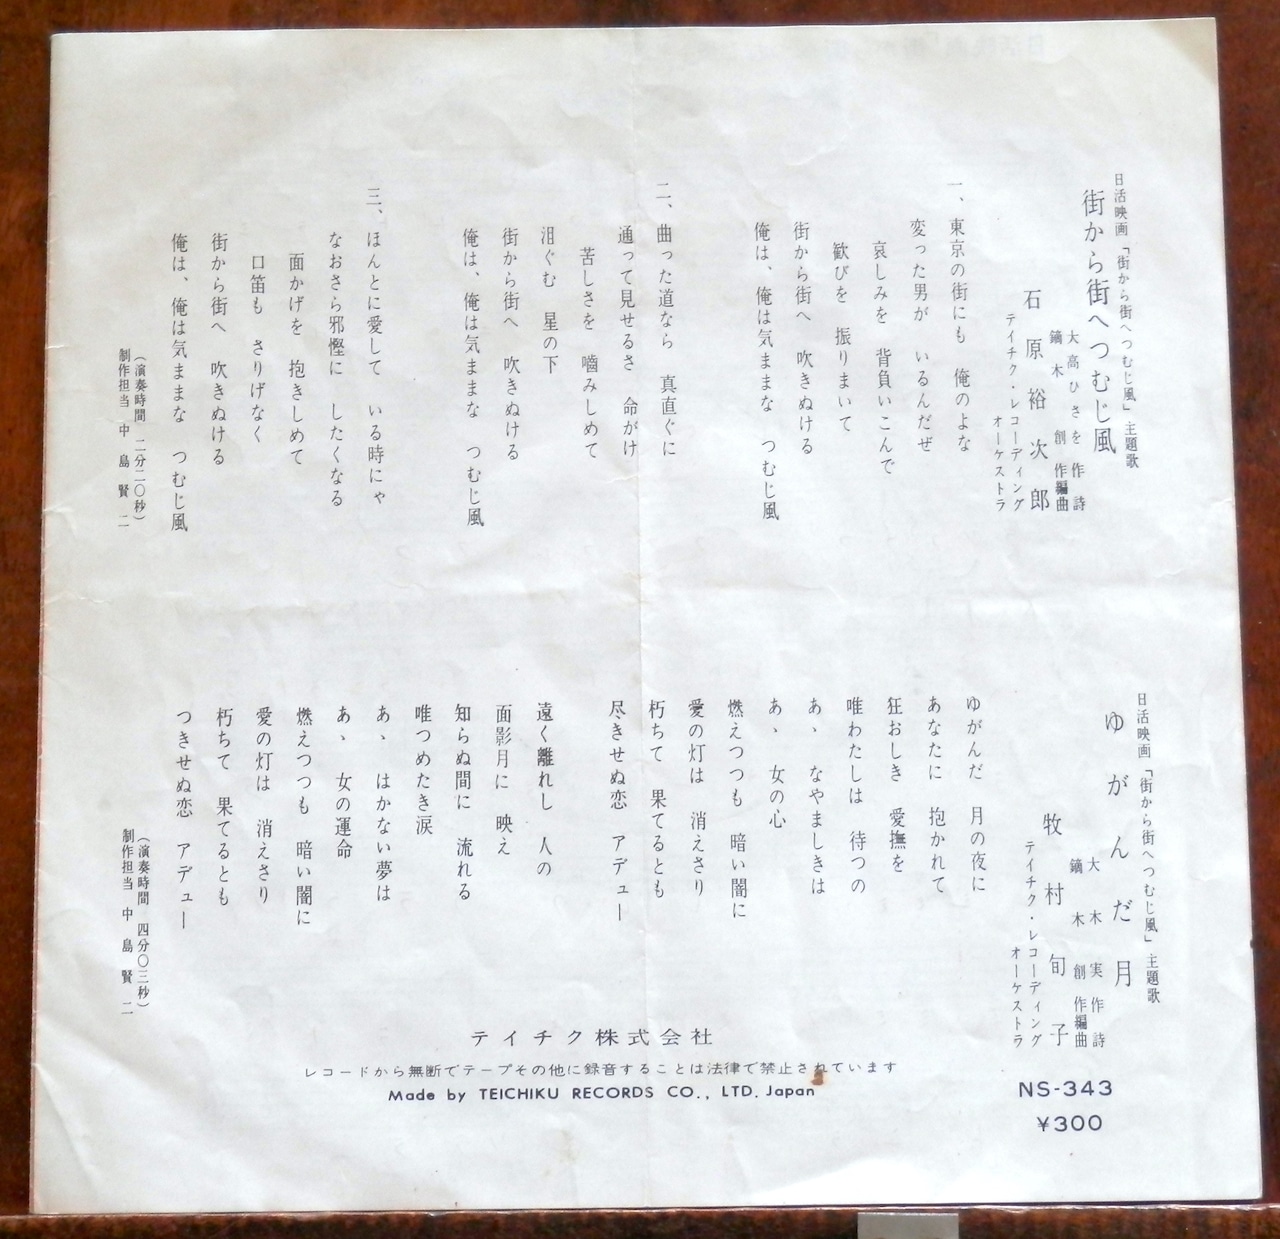 日活映画「街から街へつむじ風」主題歌
街から街へつむじ風
大高ひさを 作詩
鏑木 創 作編曲
石原裕次郎
テイチク・レコーディング
オーケストラ
一、東京の街にも 俺のよな
変った男が いるんだぜ
哀しみを 背負いこんで
歓びを 振りまいて
街から街へ 吹きぬける
俺は、俺は気ままな つむじ風
二、曲った道なら 真直ぐに
通って見せるさ 命がけ
苦しさを 嚙みしめて
泪ぐむ 星の下
街から街へ 吹きぬける
俺は、俺は気ままな つむじ風
三、ほんとに愛して いる時にゃ
なおさら邪慳に したくなる
面かげを 抱きしめて
口笛も さりげなく
街から街へ 吹きぬける
俺は、俺は気ままな つむじ風
(演奏時間 二分二〇秒)
制作担当 中島賢二
日活映画「街から街へつむじ風」主題歌
ゆがんだ月
大木 実 作詩
鏑木 創 作編曲
牧村旬子
テイチク・レコーディング
オーケストラ
ゆがんだ 月の夜に
あなたに 抱かれて
狂おしき 愛撫を
唯わたしは 待つの
あゝ なやましきは
あゝ 女の心
燃えつつも 暗い闇に
愛の灯は 消えさり
朽ちて 果てるとも
尽きせぬ恋 アデュー
遠く離れし 人の
面影月に 映え
知らぬ間に 流れる
唯つめたき涙
あゝ はかない夢は
あゝ 女の運命
燃えつつも 暗い闇に
愛の灯は 消えさり
朽ちて 果てるとも
つきせぬ恋 アデュー
(演奏時間 四分〇三秒)
制作担当 中島賢二
テイチク株式会社
レコードから無断でテープその他に録音することは法律で禁止されています
Made by TEICHIKU RECORDS CO., LTD. Japan
NS-343
¥300